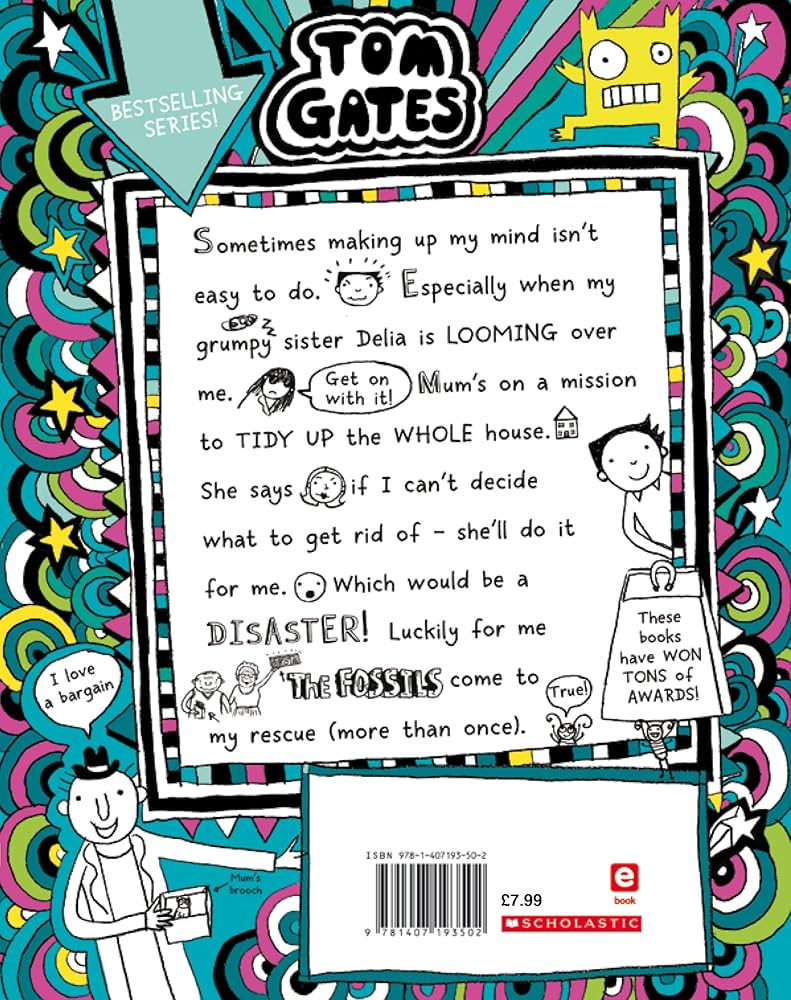 TOM
GATES
BESTSELLING
SERIES!
Sometimes making up my mind isn't
easy to do. Especially when my
grumpy sister Delia is LOOMING over
me. Get on with it! Mum's on a mission
to TIDY UP the WHOLE house.
She says if I can't decide
what to get rid of – she'll do it
for me. Which would be a
DISASTER! Luckily for me
THE FOSSILS come to
my rescue (more than once).
True!
These
books
have WON
TONS of
AWARDS!
I love
a bargain
Mum's
brooch
ISBN 978-1-407193-50-2
9 781407 193502
£7.99
e
book
SCHOLASTIC